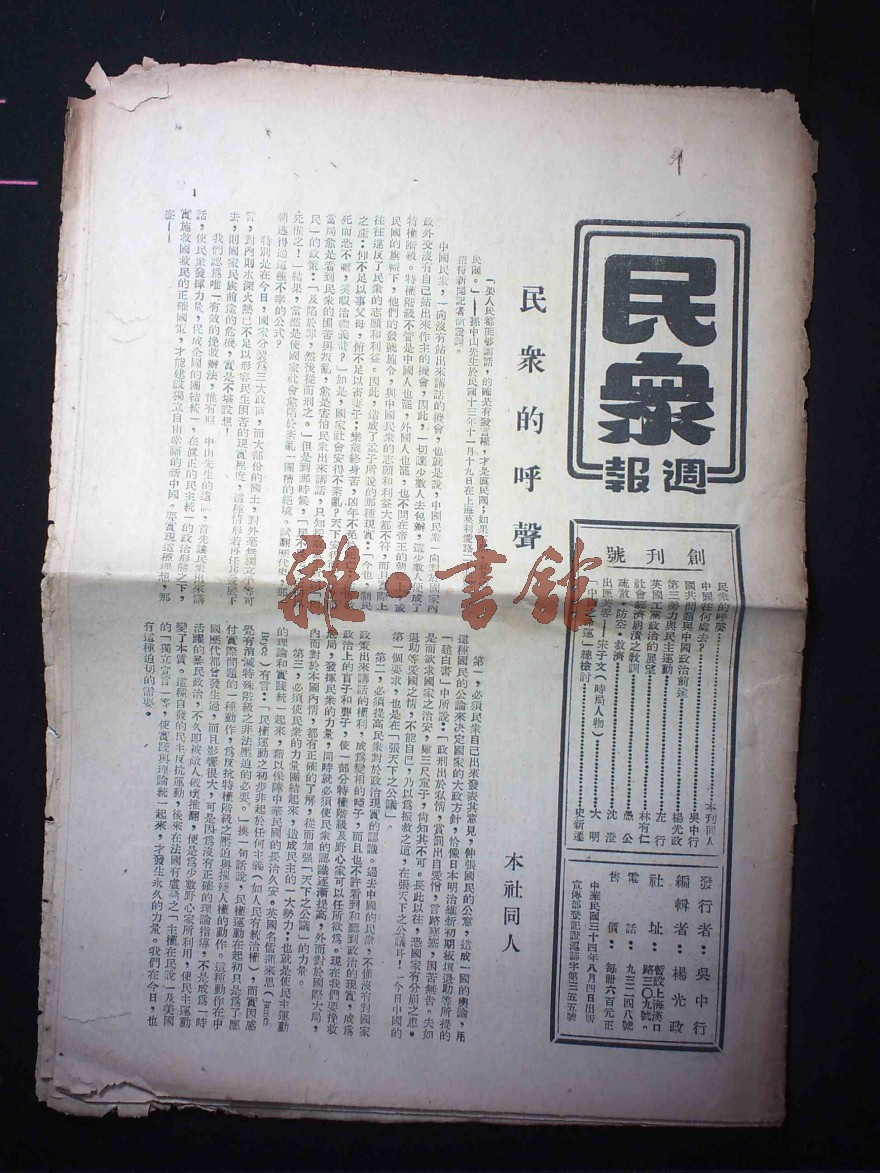 民衆
週報
創刊號
民衆的呼聲…………本刊同人
中國往何處去？…………吳中行
國共問題與中國政治前途…………楊光政
第三勢力與民主運動…………左行
英國工黨政治的展望…………林有仁
社會經濟崩潰之教訓…………愚公
疏散・防空・救濟…………沈澄
出匣芙蓉——宋子文（時局人物）…………大明
「中國之命運」總檢討…………史新遷
發行者：吳中行
編輯者：楊光政
社址：暫設上海漢口路三〇九號。
電話：九三二四八號
售價：每冊六百元正
中華民國三十四年八月四日出版
宣傳部登記證滬誌字第三五五號
民衆的呼聲
本社同人
「要人民都能够講話，的確是有發言權，才是眞民國；如果
民國。」——孫中山先生於民國十三年十一月十九日在上海莫利愛路
招待新聞記者演說詞。
中國民衆，一向沒有站出來講話的機會，也就是說，中國民衆一向對於國家內
政外交沒有自己站出來作主的機會，因此，一切讓少數人去包辦，這少數人便成了
特權階級。特權階級不管是中國人也罷，外國人也罷，也不問在帝王的朝上，或
民國的旗幟下，他們的發號施令，與中國民衆的志願和利益大都不符，而且實際上
往往違反了民衆的志願和利益。因此，造成了孟子所說的那種現實：「今也，制民
之產：仰不足以事父母，俯不足以畜妻子；樂歲終身苦，凶年不免
死而恐不贍，奚暇治禮義哉？」如是，國家社會安得不紊亂？天下安
當局愈是看到民衆的困苦與叛亂，愈是害怕民衆出來講話，只知採取
民」的政策：「及陷於罪，然後從而刑之。」但是到那時候，「民不
死懼之！」結果，當然是使國家社會愈陷於紊亂一團糟的絕境。試翻歷代史
朝逃得過這種不幸的公式？
特別是在今日，國家分裂爲三大政區，而大部份的國土，對外毫無獨立平等可
言，對內則水深火熱已不足以形容民生困苦的現實程度，這種情形若再任其發展下
去，則國家民族前途的危機，實是不堪設想，
我們認爲唯一有效的挽救辦法，惟有照　中山先生的遺　，首先讓民衆出來講
話，使民衆發揮力量，促成全國的團結統一，在眞正的民主統一的政治形態之下，
實施救國救民的正確國策，才能建設獨立自由幸福的新中國。要實現這種理想，那
麼——
第一，必須民衆自己出來發表其意見，伸張國民的公意，造成一國的輿論，用
這種國民的公論來決定國家的大政方針，恰像日本明治維新初期板垣退助等所提的
「建白書」中所說：「政刑出於私情，賞罰出自愛憎，言路壅塞，困苦無告。夫如
是而欲求國家之治安，雖三尺童子，尚知其不可。長此以往，恐國家有分崩之患。
退助等愛國之情，不能自已，乃以爲振救之道，在張天下之公議耳！」今日中國的
第一個要求，也是在「張天下之公議」。
第二，必須提高民衆對於政治現實的認識。過去中國的民衆，不僅沒有對國家
政策出來講話的權利，成爲變相的啞子，而且也不許看到和聽到政治的現實，成爲
政治上的盲子和聾子，使一部分特權階級及野心家可以任所欲爲。現在我們要挽救
危局，發揮民衆的力量，同時就必須使民衆的認識逐漸提高，外而對於國際大局，
內而對於本國內情，都有正確的了解，從而加强「天下之公議」的力量。
第三，必須使民衆的力量團結起來，造成民主的一大勢力；也就是使民主運動
的理論和實踐統一起來，藉以保障中華民國的長治久安。英國名儒薄來思（James
Bryce）有言：「民權運動之初步非起於任何主義（如人民有統治權），而實因感
覺有消滅特殊階級之非法壓迫的必要。」換一句話說，民權運動在起初只是爲了應
付實際問題的一種動作，爲反抗特權階級之壓迫與摧殘人權的動作。這種動作在中
國歷代都曾發生過，而且影響很大，可是因爲沒有正確的理論指導，不是成爲一時
活躍的暴民政治，不久即被敵人破壞推翻，便是爲少數野心家所利用，使民主運動
變了本質。這種自發的民主反抗運動，後來在法國有盧騷之「主權在民說」及美國
的「獨立宣言」等，使實踐與理論統一起來，才發生永久的力量。我們在今日，也
有這種迫切的需要。
雜・書館